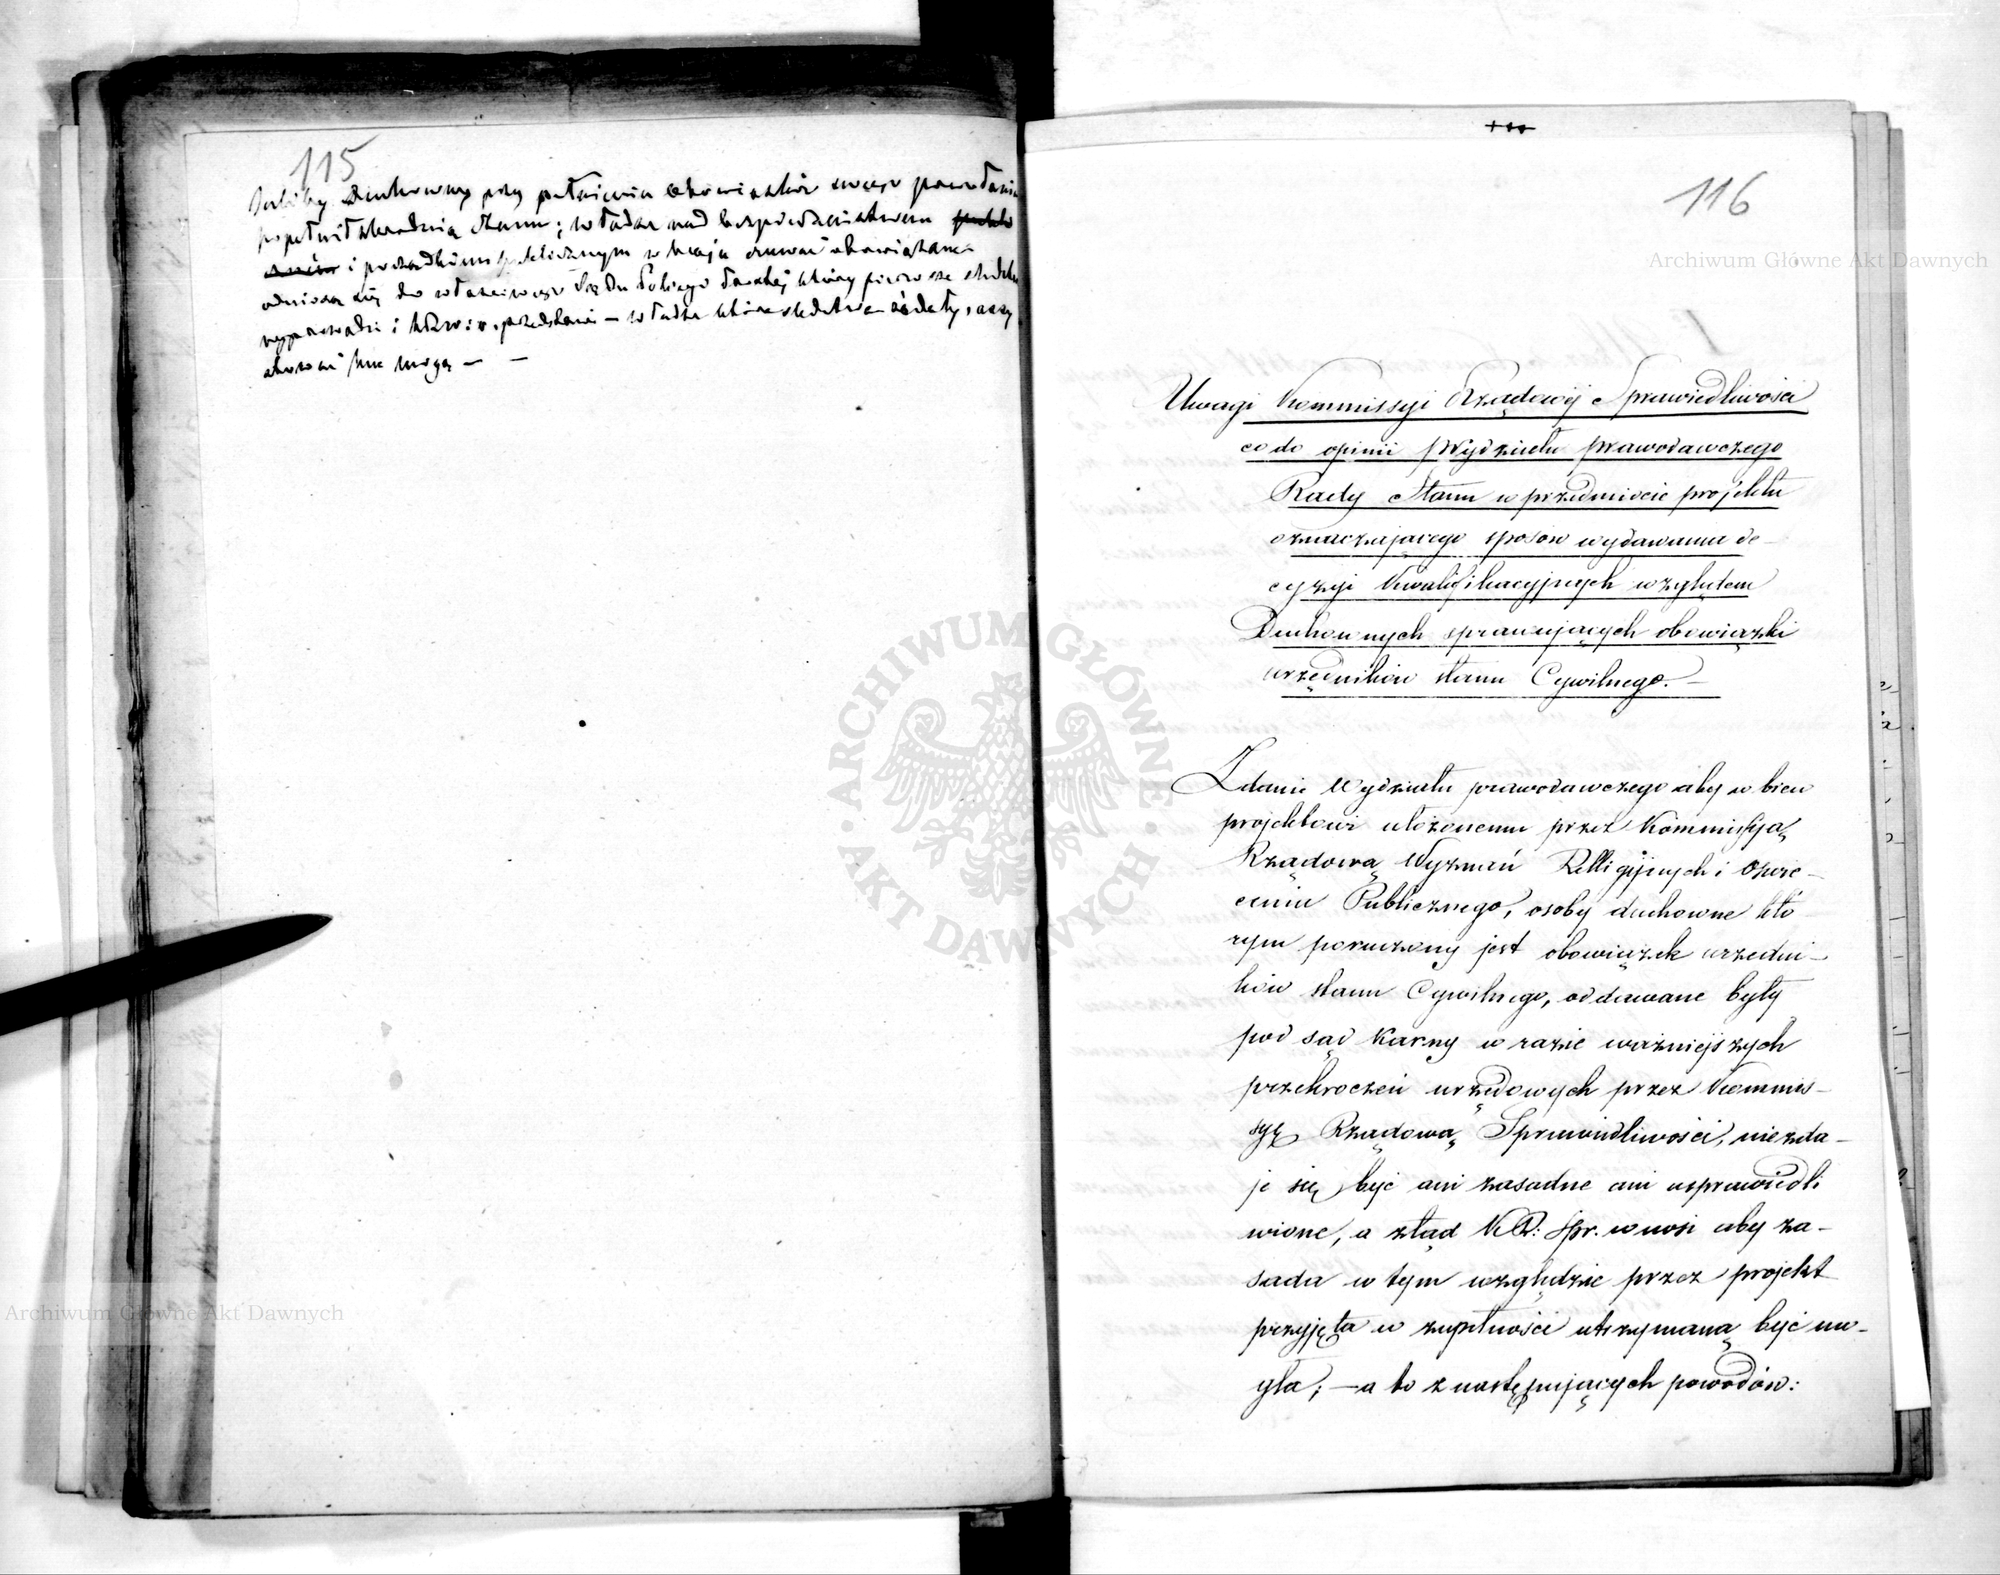 115
Jeżeliby Duchowny przy pełnieniu obowiązków swego powołania
popełnił zbrodnią Stanu; władza nad bezpieczeństwem
i porządkiem publicznym w kraju czuwać obowiązana
odniesie się do właściwego Sądu który pierwsze
wyprowadzi i przedstawi — władza która
nie mogą — —
116
Uwagi Kommissyi Rządowej Sprawiedliwości
co do opinii Wydziału prawodawczego
Rady Stanu w przedmiocie projektu
oznaczającego sposób wydawania de-
cyzyi kwalifikacyjnych względem
Duchownych sprawujących obowiązki
urzędników stanu Cywilnego. —
Zdanie Wydziału prawodawczego aby wbrew
projektowi ułożonemu przez Kommissyją
Rządową Wyznań Relligijnych i Oświe-
cenia Publicznego, osoby duchowne któ
rym poruczony jest obowiązek urzedni-
ków stanu Cywilnego, oddawane były
pod sąd karny w razie ważniejszych
przekroczeń urzędowych przez Kommis-
syę Rządową Sprawiedliwości, nie zda-
je się być ani zasadne ani usprawiedli
wione, a ztąd K.R: Spr. wnosi aby za-
sada w tym względzie przez projekt
przyjęta w zupełności utrzymaną być mo-
gła; — a to z następujących powodów:
Archiwum Główne Akt Dawnych
ARCHIWUM GŁÓWNE · AKT DAWNYCH ·
Archiwum Główne Akt Dawnych